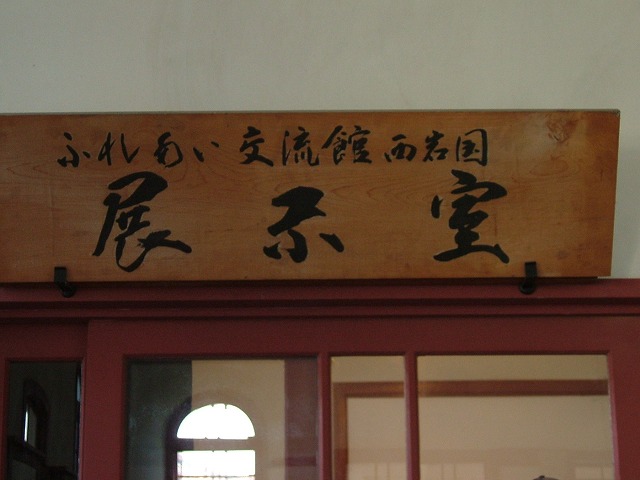 ふれあい交流館西岩国
展示室